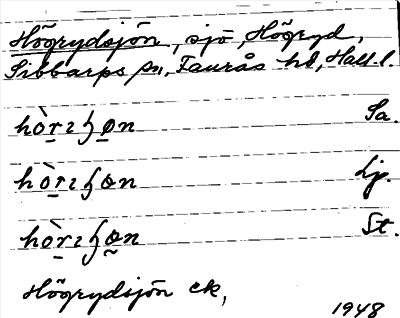 Högrydsjön, sjö, Högryd,
Sibbarps sn, Faurås hd, Hall. l.
hòrıʃøn Sa.
hòrıʃøn Lj.
hòrıʃøn St.
Högrydsjön ek,
1948